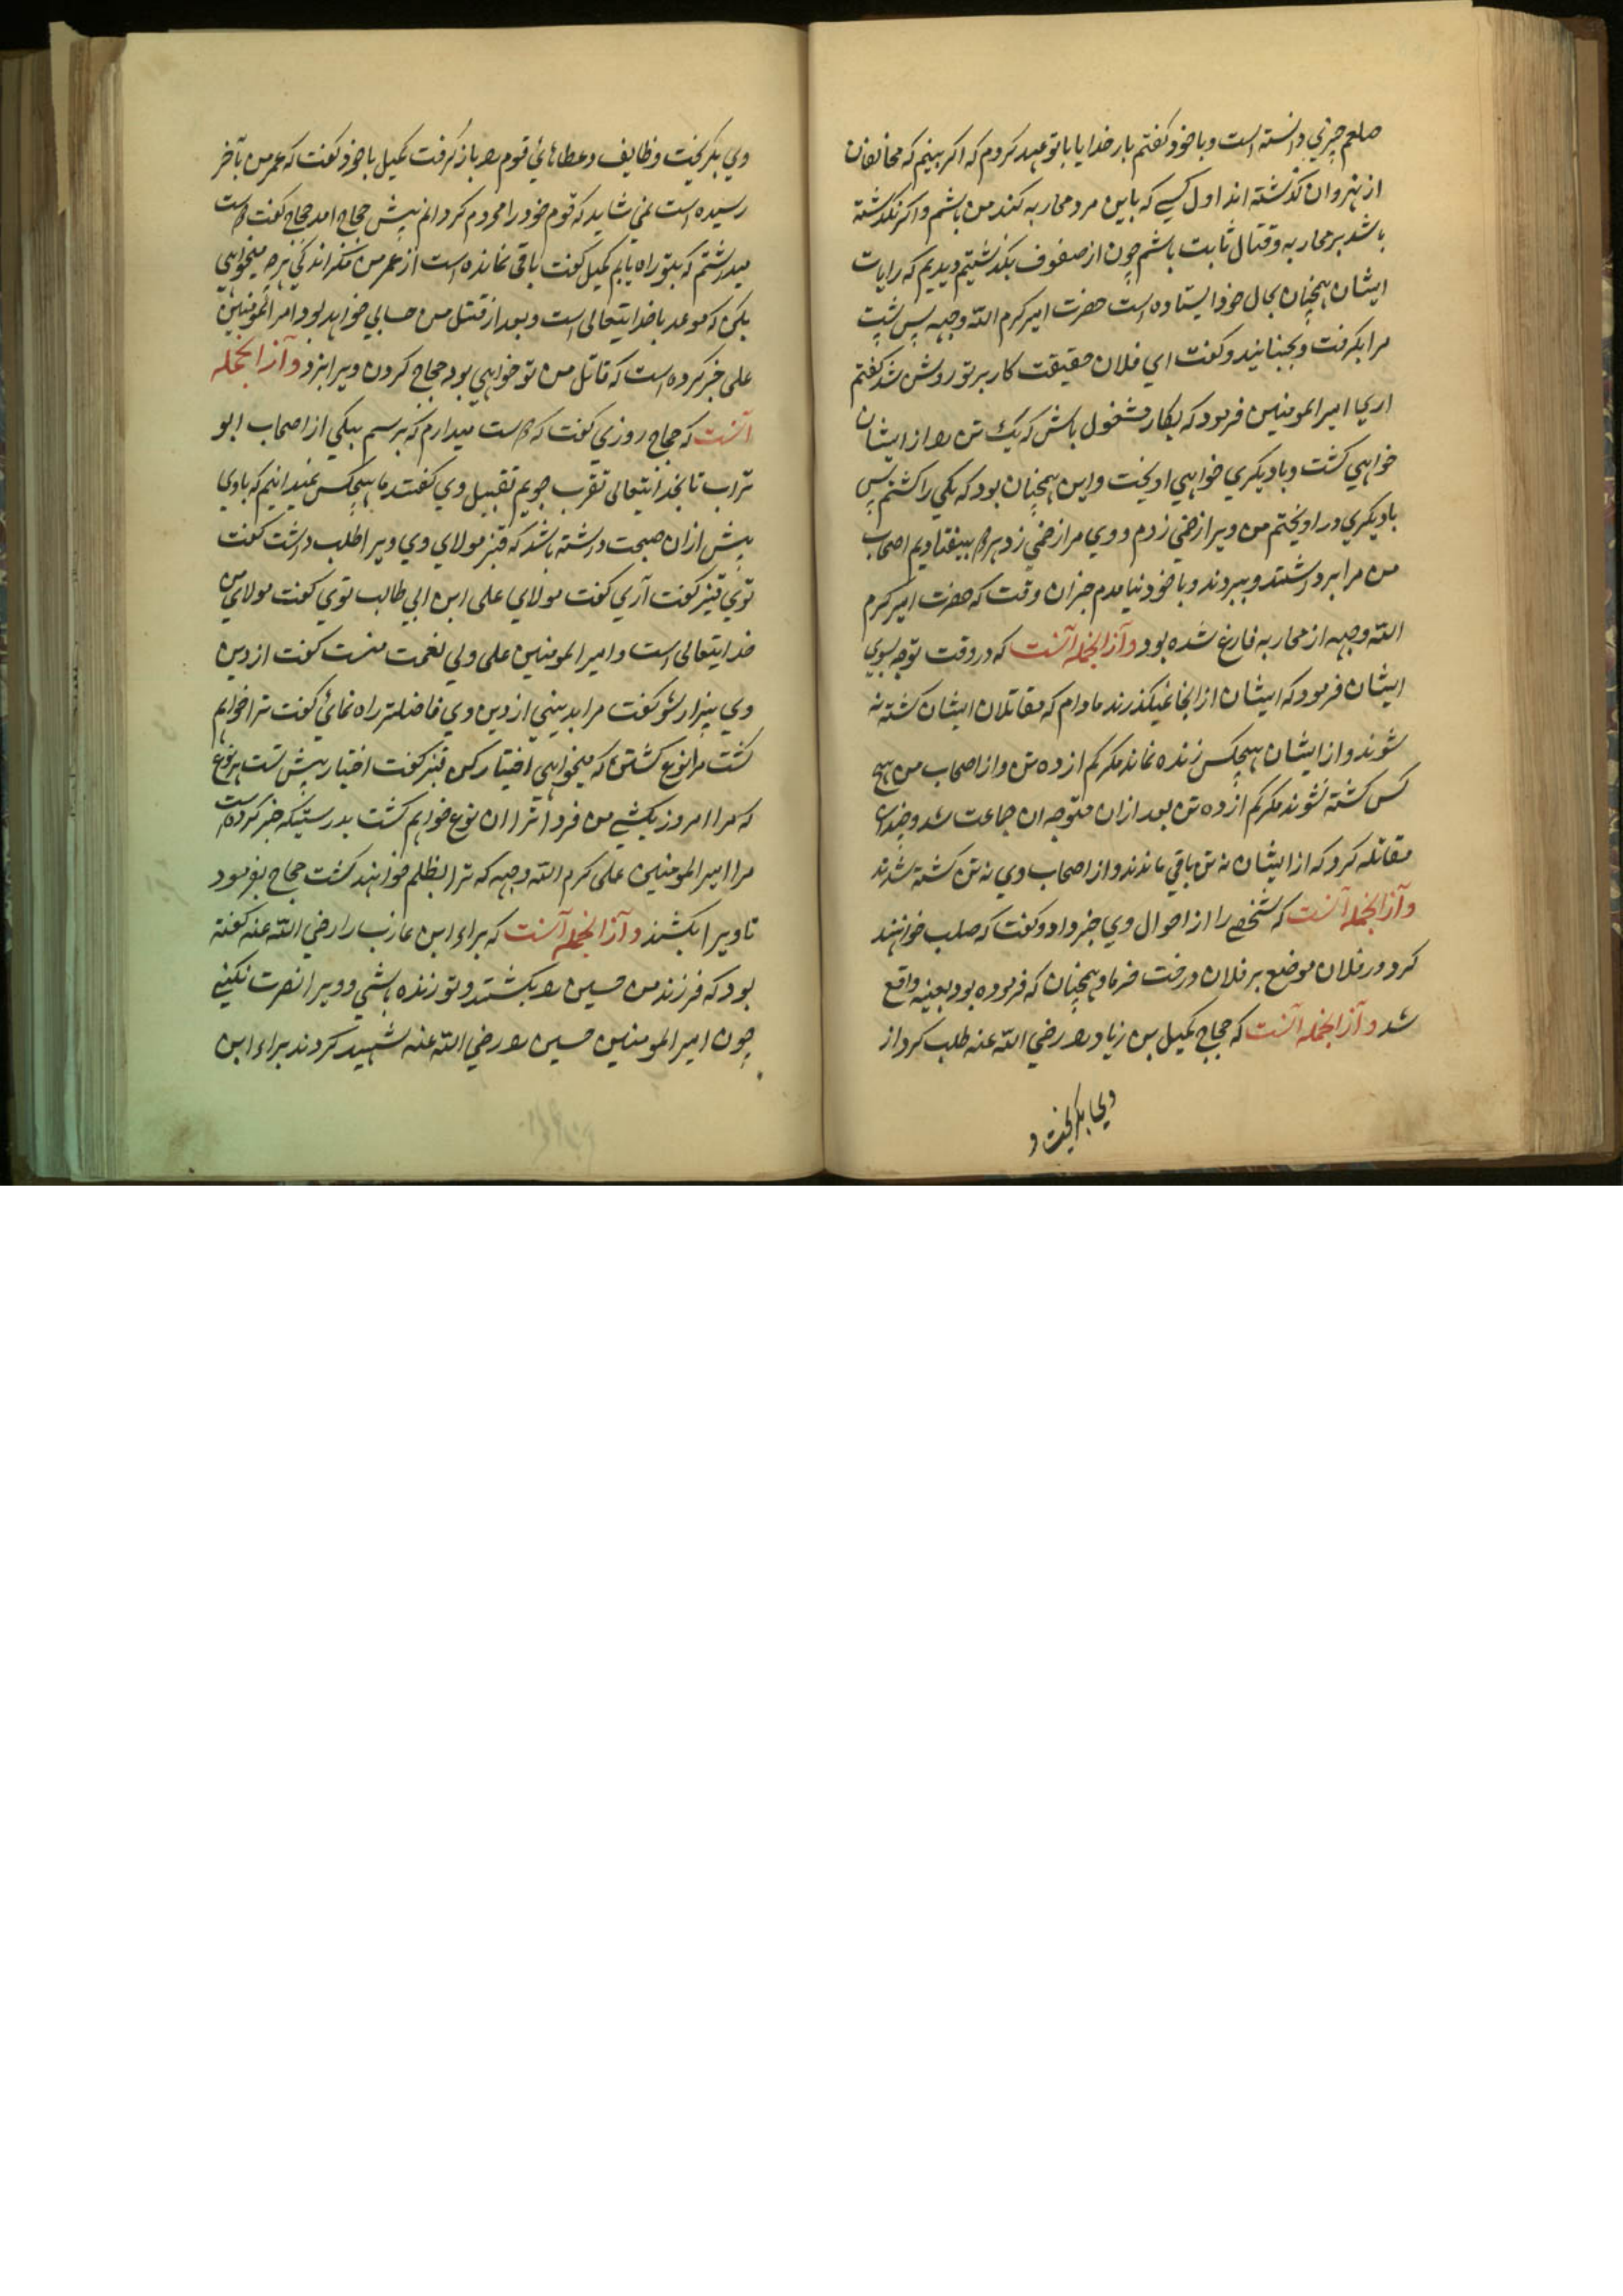 صلعم چیزی دانسته است و با خود کفتم بار خدایا با تو عهد کردم که اکر بینم که مخالفان
از نهروان کذشته اند اول کسی که باین مرد محاربه کند من باشم و اکر نکذشته
باشند بر محاربه و قتال ثابت باشم چون از صفوف بکذشتیم دیدیم که رایات
ایشان همچنان بحال خود ایستاده است حضرت امیر کرم الله وجهه پس پشت
مرا بکرفت و بجنبانید و کفت ای فلان حقیقت کار بر تو روشن شد کفتم
اری امیر المومنین فرمود که بکار مشغول باش که یک تن را از ایشان
خواهی کشت و با دیکری خواهی اویخت و این همچنان بود که یکی را کشتم پس
با دیکری در اویختم من ویرا زخمی زدم و وی مرا زخمی زد هر دو بیفتادیم اصحاب
من مرا برداشتند و ببردند و با خود نیامدم جز ان وقت که حضرت امیر کرم
الله وجهه از محاربه فارغ شده بود و از انجمله آنست که در وقت توجه بسوی
ایشان فرمود که ایشان از انجا نمیکذرند مادام که مقاتلان ایشان کشته نه
شوند و از ایشان هیچکس زنده نماند مکر کم از ده تن و از اصحاب من هیچ
کس کشته نشوند مکر کم از ده تن بعد از ان متوجه ان جماعت شد و چندان
مقاتله کرد که از ایشان نه تن باقی ماندند و از اصحاب وی نه تن کشته شدند
و از انجمله آنست که شخصی را از احوال وی خبر داد و کفت که صلب خواهند
کرد در فلان موضع بر فلان درخت خرما و همچنان که فرموده بود بعینه واقع
شد و از انجمله آنست که حجاج کمیل بن زیاد را رضی الله عنه طلب کرد از
وی بکریخت و
وی بکریخت وظایف و عطاهای قوم را باز کرفت کمیل با خود کفت که عمر من بآخر
رسیده است نمی شاید که قوم خود را محروم کردانم پیش حجاج امد حجاج کفت دوست
میداشتم که بتو راه یابم کمیل کفت باقی نمانده است از عمر من مکر اندکی هرچه میخواهی
بکن که موعد با خدایتعالی است و بعد از قتل من حسابی خواهد بود و امیر المومنین
علی خبر کرده است که قاتل من تو خواهی بود حجاج کردن ویرا بزد و از انجمله
آنست که حجاج روزی کفت که دوست میدارم که برسم بیکی از اصحاب ابو
تراب تا بخدایتعالی تقرب جویم بقتل وی کفتند ما هیچکس نمیدانیم که با وی
بیش از ان صحبت داشته باشد که قنبر مولای وی ویرا طلب داشت کفت
توی قنبر کفت آری کفت مولای علی ابن ابی طالب توی کفت مولای من
خدایتعالی است و امیر المومنین علی ولی نعمت منست کفت از دین
وی بیزار شو کفت مرا بدینی از دین وی فاضلتر راه نمائی کفت ترا خواهم
کشت هر نوع کشتن که میخواهی اختیار کن قنبر کفت اختیار پیش تست هر نوع
که مرا امروز بکشی من فردا ترا ان نوع خواهم کشت بدرستیکه خبر کرده است
مرا امیر المومنین علی کرم الله وجهه که ترا بظلم خواهند کشت حجاج بفرمود
تا ویرا بکشند و از انجمله آنست که براء ابن عازب را رضی الله عنه کفته
بود که فرزند من حسین را بکشند و تو زنده باشی و ویرا نصرت نکنی
چون امیر المومنین حسین را رضی الله عنه شهید کردند براء ابن